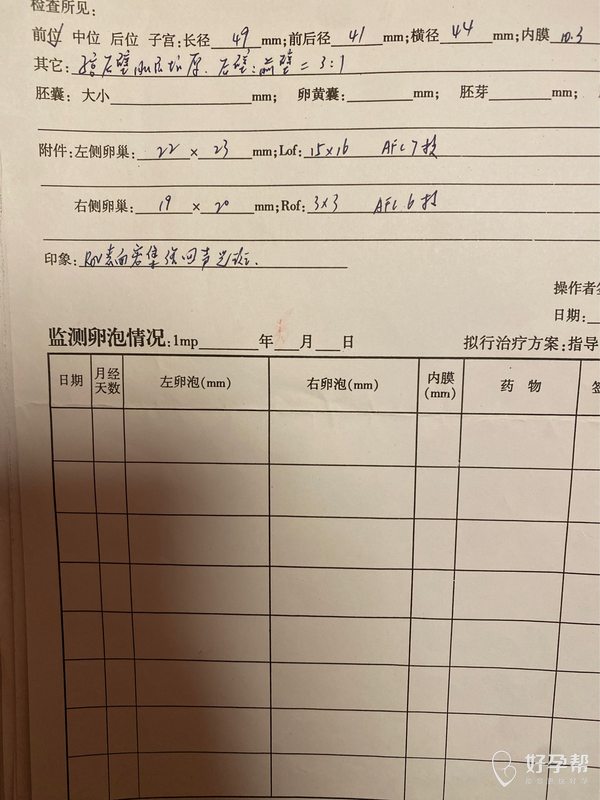 检查所见：
前位 中位 后位 子宫：长径 49 mm；前后径 41 mm；横径 44 mm；内膜 10.3
其它： 后壁 厚．后壁：前壁 = 3:1
胚囊：大小 mm； 卵黄囊： mm； 胚芽 mm；
附件：左侧卵巢： 22 × 23 mm；Lof： 15×16 AFC 7枚
右侧卵巢： 19 × 20 mm；Rof： 3×3 AFC 6枚
印象： Rov表面密集强回声光斑．
操作者签
日期：
监测卵泡情况：1mp 年 月 日 拟行治疗方案：指导
日期 月经天数 左卵泡(mm) 右卵泡(mm) 内膜(mm) 药 物 签
好孕帮